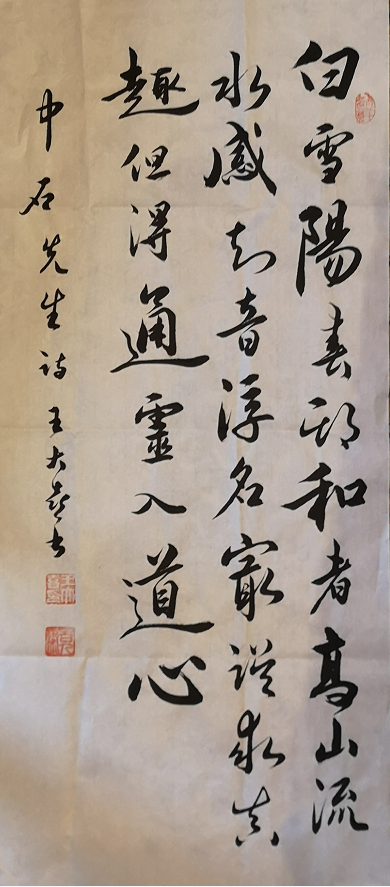 白雪陽春和者高山流
水感知音浮名求真
趣但得通靈入道心
中石先生詩王大書